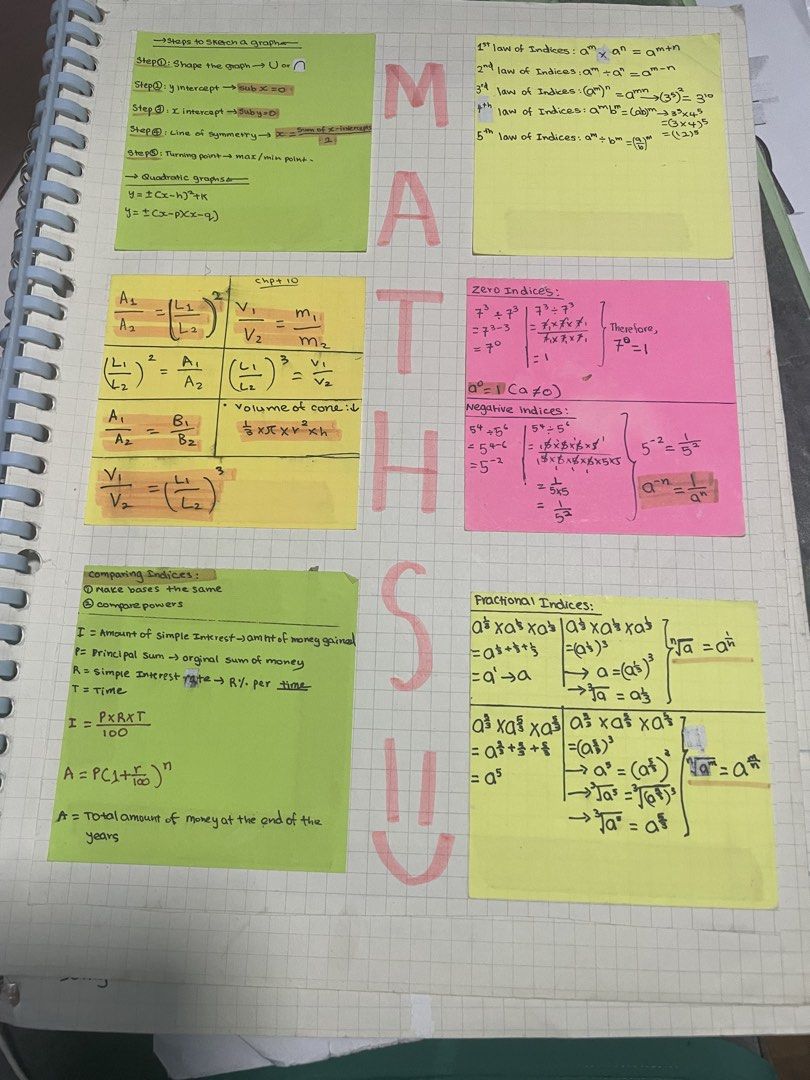 →Steps to sketch a graph←
Step①: Shape the graph → ∪ or ∩
Step②: y intercept → sub x = 0
Step③: x intercept → sub y = 0
Step④: Line of symmetry → x = sum of x-intercepts / 2
Step⑤: Turning point → max/min point.
→ Quadratic graphs←
y = ±(x-h)²+k
y = ±(x-p)(x-q)
M
A
T
H
S
1st law of Indices: a^m × a^n = a^m+n
2nd law of Indices: a^m ÷ a^n = a^m-n
3rd law of Indices: (a^m)^n = a^mn → (3⁵)² = 3¹⁰
4th law of Indices: a^m b^m = (ab)^m → 3⁵ × 4⁵
= (3 × 4)⁵
= (12)⁵
5th law of Indices: a^m ÷ b^m = (a/b)^m
A₁/A₂ = (L₁/L₂)²
chpt 10
V₁/V₂ = m₁/m₂
(L₁/L₂)² = A₁/A₂
(L₁/L₂)³ = V₁/V₂
A₁/A₂ = B₁/B₂
• Volume of cone: ↓
1/3 × π × r² × h
V₁/V₂ = (L₁/L₂)³
Zero Indices:
7³ ÷ 7³
= 7³⁻³
= 7⁰
7³ ÷ 7³
= 7×7×7 / 7×7×7
= 1
Therefore,
7⁰ = 1
a⁰ = 1 (a ≠ 0)
Negative Indices:
5⁴ ÷ 5⁶
= 5⁴⁻⁶
= 5⁻²
5⁴ ÷ 5⁶
= 5×5×5×5 / 5×5×5×5×5×5
= 1/5×5
= 1/5²
5⁻² = 1/5²
a⁻ⁿ = 1/aⁿ
Comparing Indices:
① Make bases the same
② compare powers
I = Amount of simple Interest → amnt of money gained
P = Principal sum → orginal sum of money
R = Simple Interest rate → R% per time
T = Time
I = P×R×T / 100
A = P(1 + r/100)^n
A = Total amount of money at the end of the
years
Fractional Indices:
a^1/3 × a^1/3 × a^1/3
= a^1/3+1/3+1/3
= a¹ → a
a^1/3 × a^1/3 × a^1/3
= (a^1/3)³
→ a = (a^1/3)³
→ ³√a = a^1/3
ⁿ√a = a^1/n
a^5/3 × a^5/3 × a^5/3
= a^5/3+5/3+5/3
= a⁵
a^5/3 × a^5/3 × a^5/3
= (a^5/3)³
→ a⁵ = (a^5/3)³
→ ³√a⁵ = ³√(a^5/3)³
→ ³√a⁵ = a^5/3
ⁿ√a^m = a^m/n